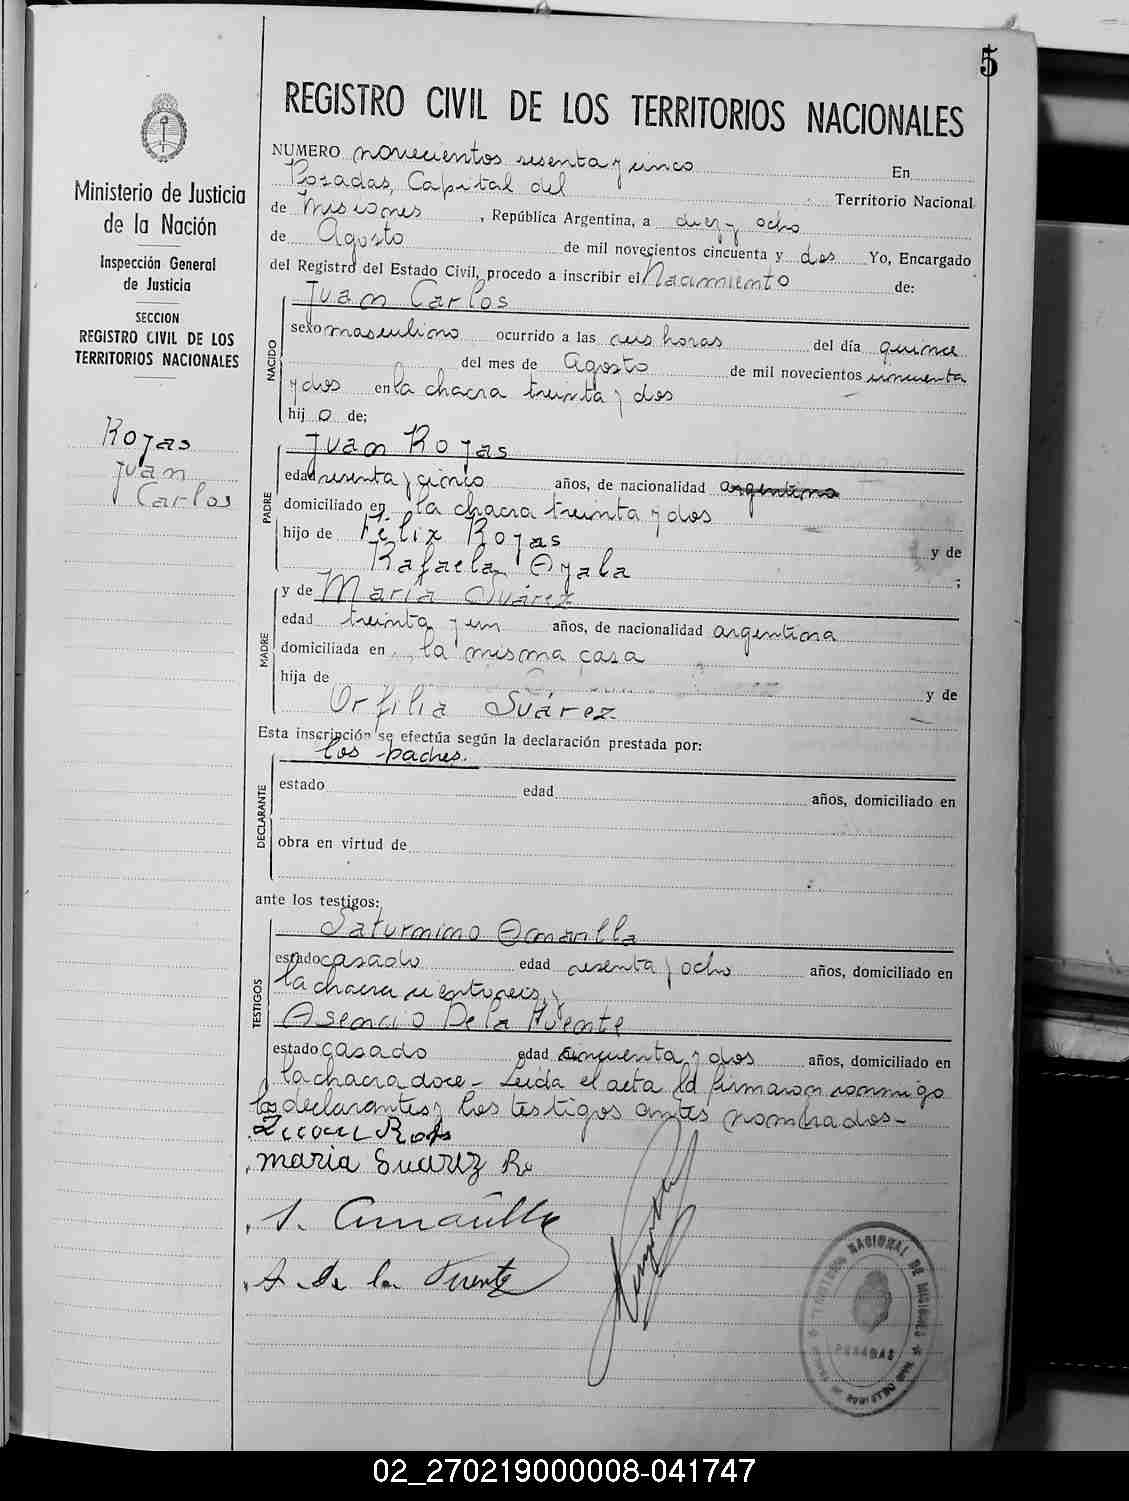 5
REGISTRO CIVIL DE LOS TERRITORIOS NACIONALES
Ministerio de Justicia
de la Nación
Inspección General
de Justicia
SECCION
REGISTRO CIVIL DE LOS
TERRITORIOS NACIONALES
Rojas
Juan
Carlos
NUMERO novecientos sesenta y cinco En
Posadas, Capital del Territorio Nacional
de Misiones, República Argentina, a diez y ocho
de Agosto de mil novecientos cincuenta y dos Yo, Encargado
del Registro del Estado Civil, procedo a inscribir el Nacimiento de:
Juan Carlos
NACIDO
sexo masculino ocurrido a las seis horas del día quince
del mes de Agosto de mil novecientos cincuenta
y dos en la chacra treinta y dos
hij o de;
Juan Rojas
PADRE
edad sesenta y cinco años, de nacionalidad argentino
domiciliado en la chacra treinta y dos
hijo de Félix Rojas y de
Rafaela Ayala ;
y de María Suárez
MADRE
edad treinta y un años, de nacionalidad argentina
domiciliada en la misma casa
hija de y de
Orfilia Suárez
Esta inscripción se efectúa según la declaración prestada por:
los padres.
DECLARANTE
estado edad años, domiciliado en
obra en virtud de
ante los testigos:
Saturnino Amarilla
TESTIGOS
estado casado edad sesenta y ocho años, domiciliado en
la chacra y
Asencio De la Fuente
estado casado edad cincuenta y dos años, domiciliado en
la chacra doce - Leída el acta la firmaron conmigo
los declarantes y los testigos antes nombrados -
Rojas
maria Suarez R
S. Amarilla
A. De la Fuente
TERRITORIO NACIONAL DE MISIONES
POSADAS
02_270219000008-041747